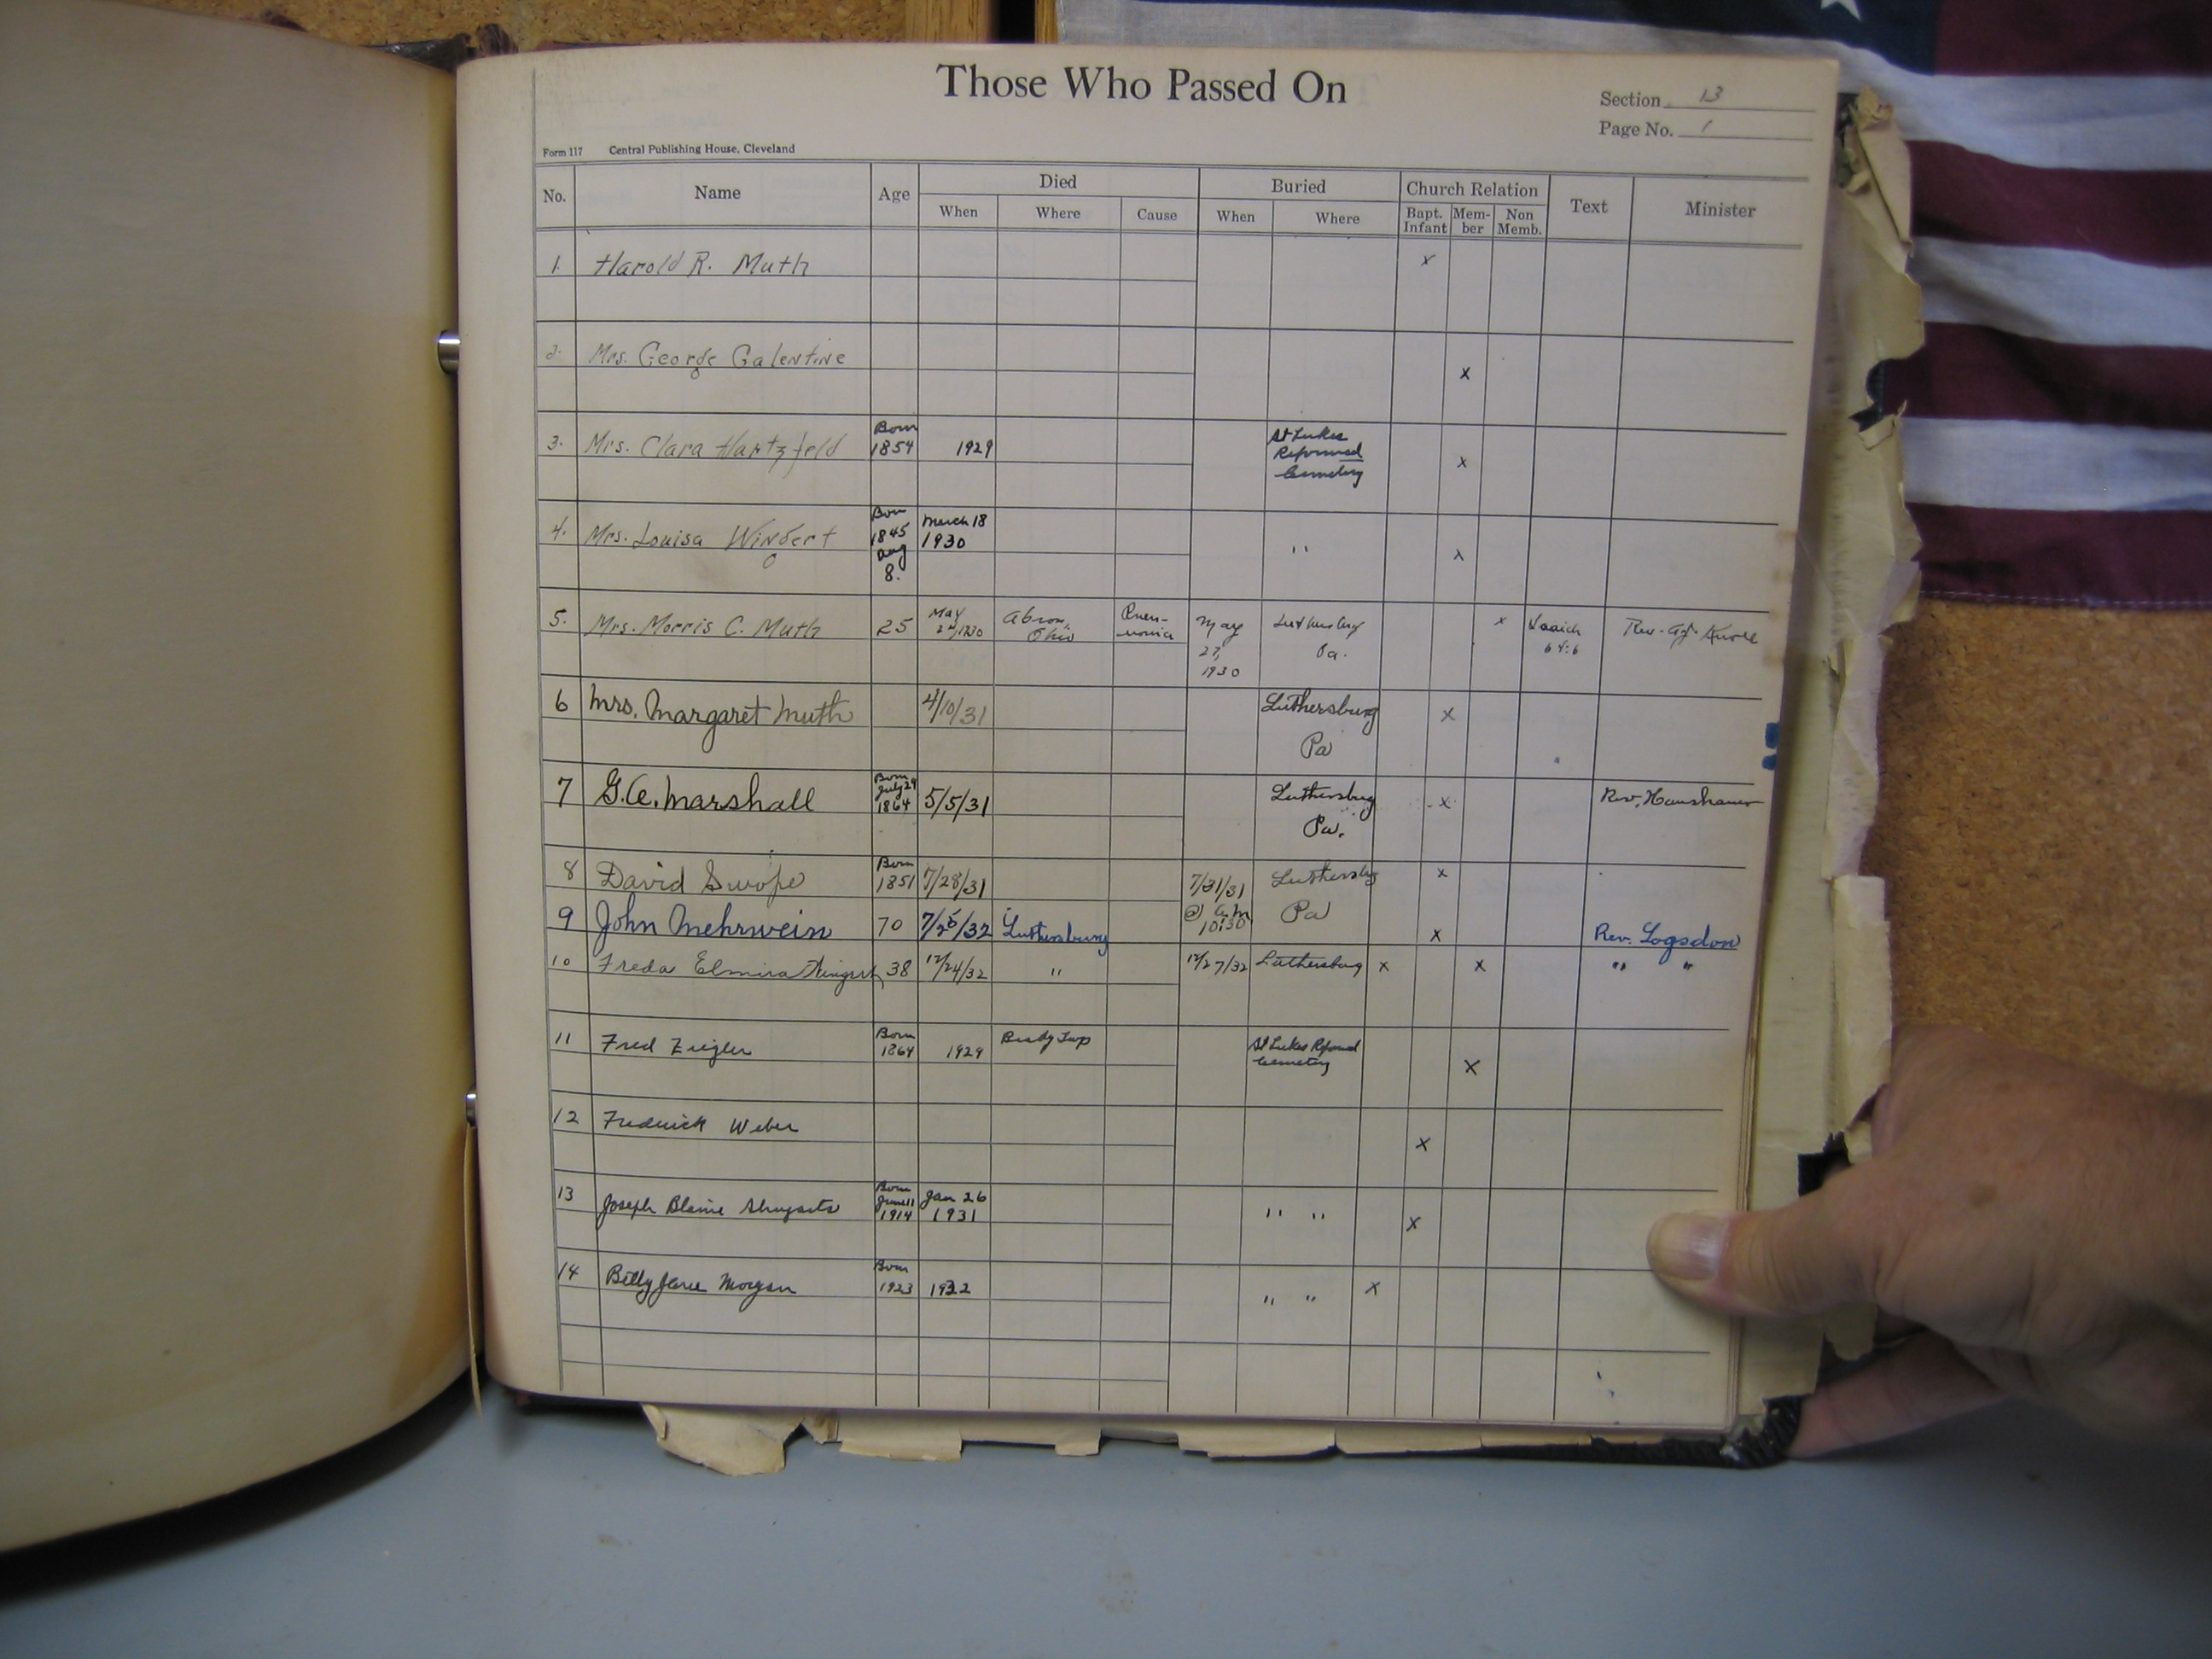 Those Who Passed On
Section 13
Page No. 1
Form 117 Central Publishing House, Cleveland
No. Name Age Died Buried Church Relation Text Minister
When Where Cause When Where Bapt. Infant Mem-ber Non Memb.
1. Harold R. Muth x
2. Mrs. George Galentine x
3. Mrs. Clara Hartzfeld Born 1854 1929 St Lukes Reformed Cemetery x
4. Mrs. Louisa Wingert Born 1845 Aug 8. March 18 1930 " x
5. Mrs. Morris C. Muth 25 May 24/1930 Ohio Pneu-monia May 27, 1930 Luthersburg Pa. x 64:6 Rev.
6 Mrs. Margaret Muth 4/10/31 Luthersburg Pa x
7 G.A. Marshall Born July 29 1864 5/5/31 Luthersburg Pa. x Rev.
8 David Swope Born 1851 7/28/31 7/31/31 @ a.m 10:30 Luthersbg Pa x
9 John Mehrwein 70 7/25/32 Luthersburg x Rev. Logsdon
10 Freda Elmira Wingert 38 12/24/32 " 12/27/32 Luthersburg x x " "
11 Fred Zeigler Born 1864 1929 Brady Twp St Lukes Reformed Cemetery x
12 Fredrick Weber x
13 Joseph Blaine Shugarts Born June 11 1914 Jan 26 1931 " " x
14 Betty Jane Morgan Born 1923 1932 " " x